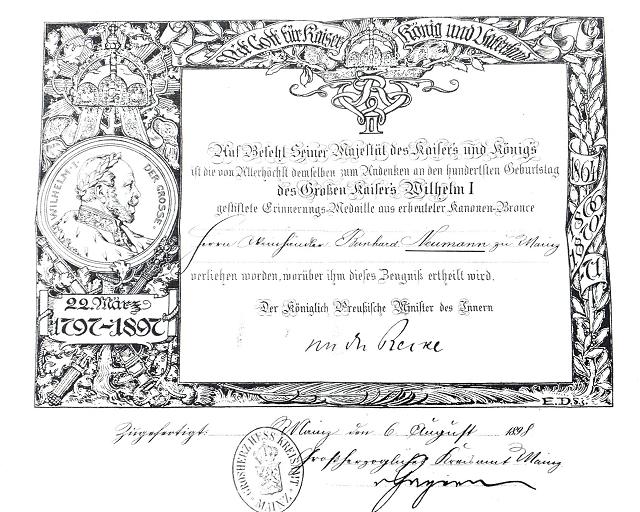 Mit Gott für Kaiser König und Vaterland
WILHELM·I· DER GROSSE
22. März
1797-1897
1864
1866
1870
71
Auf Befehl Seiner Majestät des Kaisers und Königs
ist die von Allerhöchst demselben zum Andenken an den hundertsten Geburtstag
des Großen Kaisers Wilhelm I
gestiftete Erinnerungs-Medaille aus erbeuteter Kanonen-Bronce
Herrn Weinhändler Neumann zu Mainz
verliehen worden, worüber ihm dieses Zeugniß ertheilt wird.
Der Königlich Preußische Minister des Innern
von der Recke
E.D.s.c.
Zugefertigt: Mainz den 6. August 1898
Großherzogliches Kreisamt Mainz
GROSHERZ. HESS. KREISAMT MAINZ